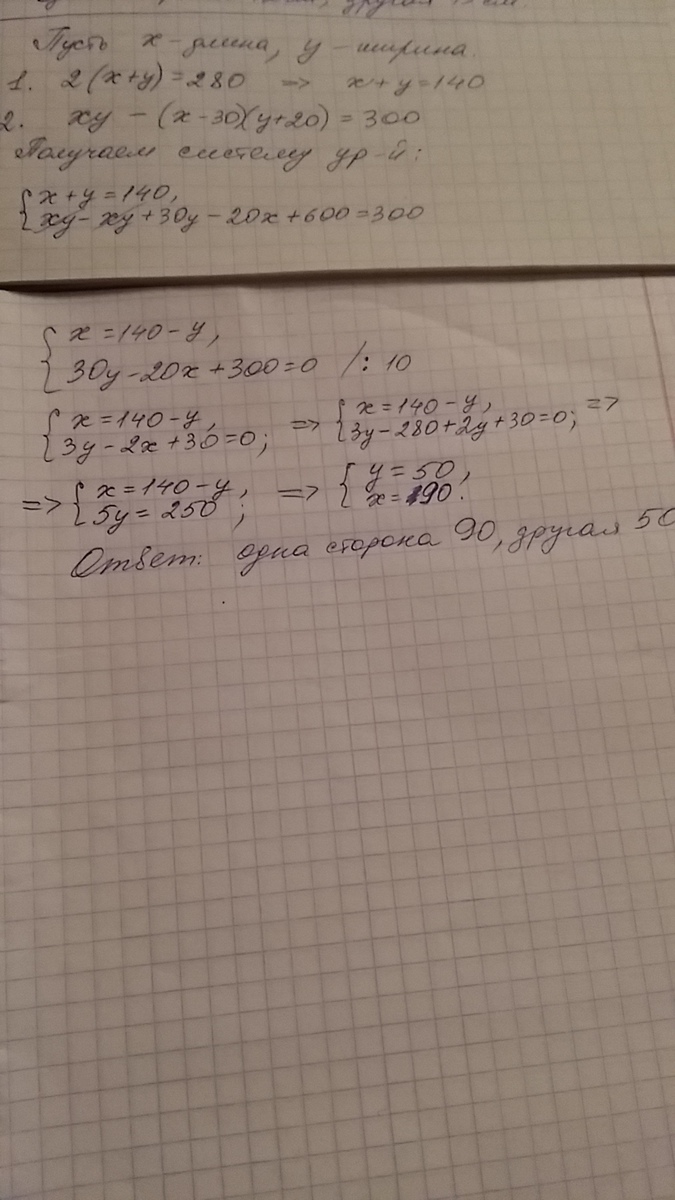 другая
Пусть x-длина, y-ширина.
1. 2(x+y)=280 => x+y=140
2. xy - (x-30)(y+20) = 300
Получаем систему ур-й:
{ x+y=140,
xy-xy+30y-20x+600=300
{ x=140-y,
30y-20x+300=0 /:10
{ x=140-y, => { x=140-y, =>
3y-2x+30=0; 3y-280+2y+30=0;
=> { x=140-y, => { y=50,
5y=250; x=90.
Ответ: одна сторона 90, другая 50